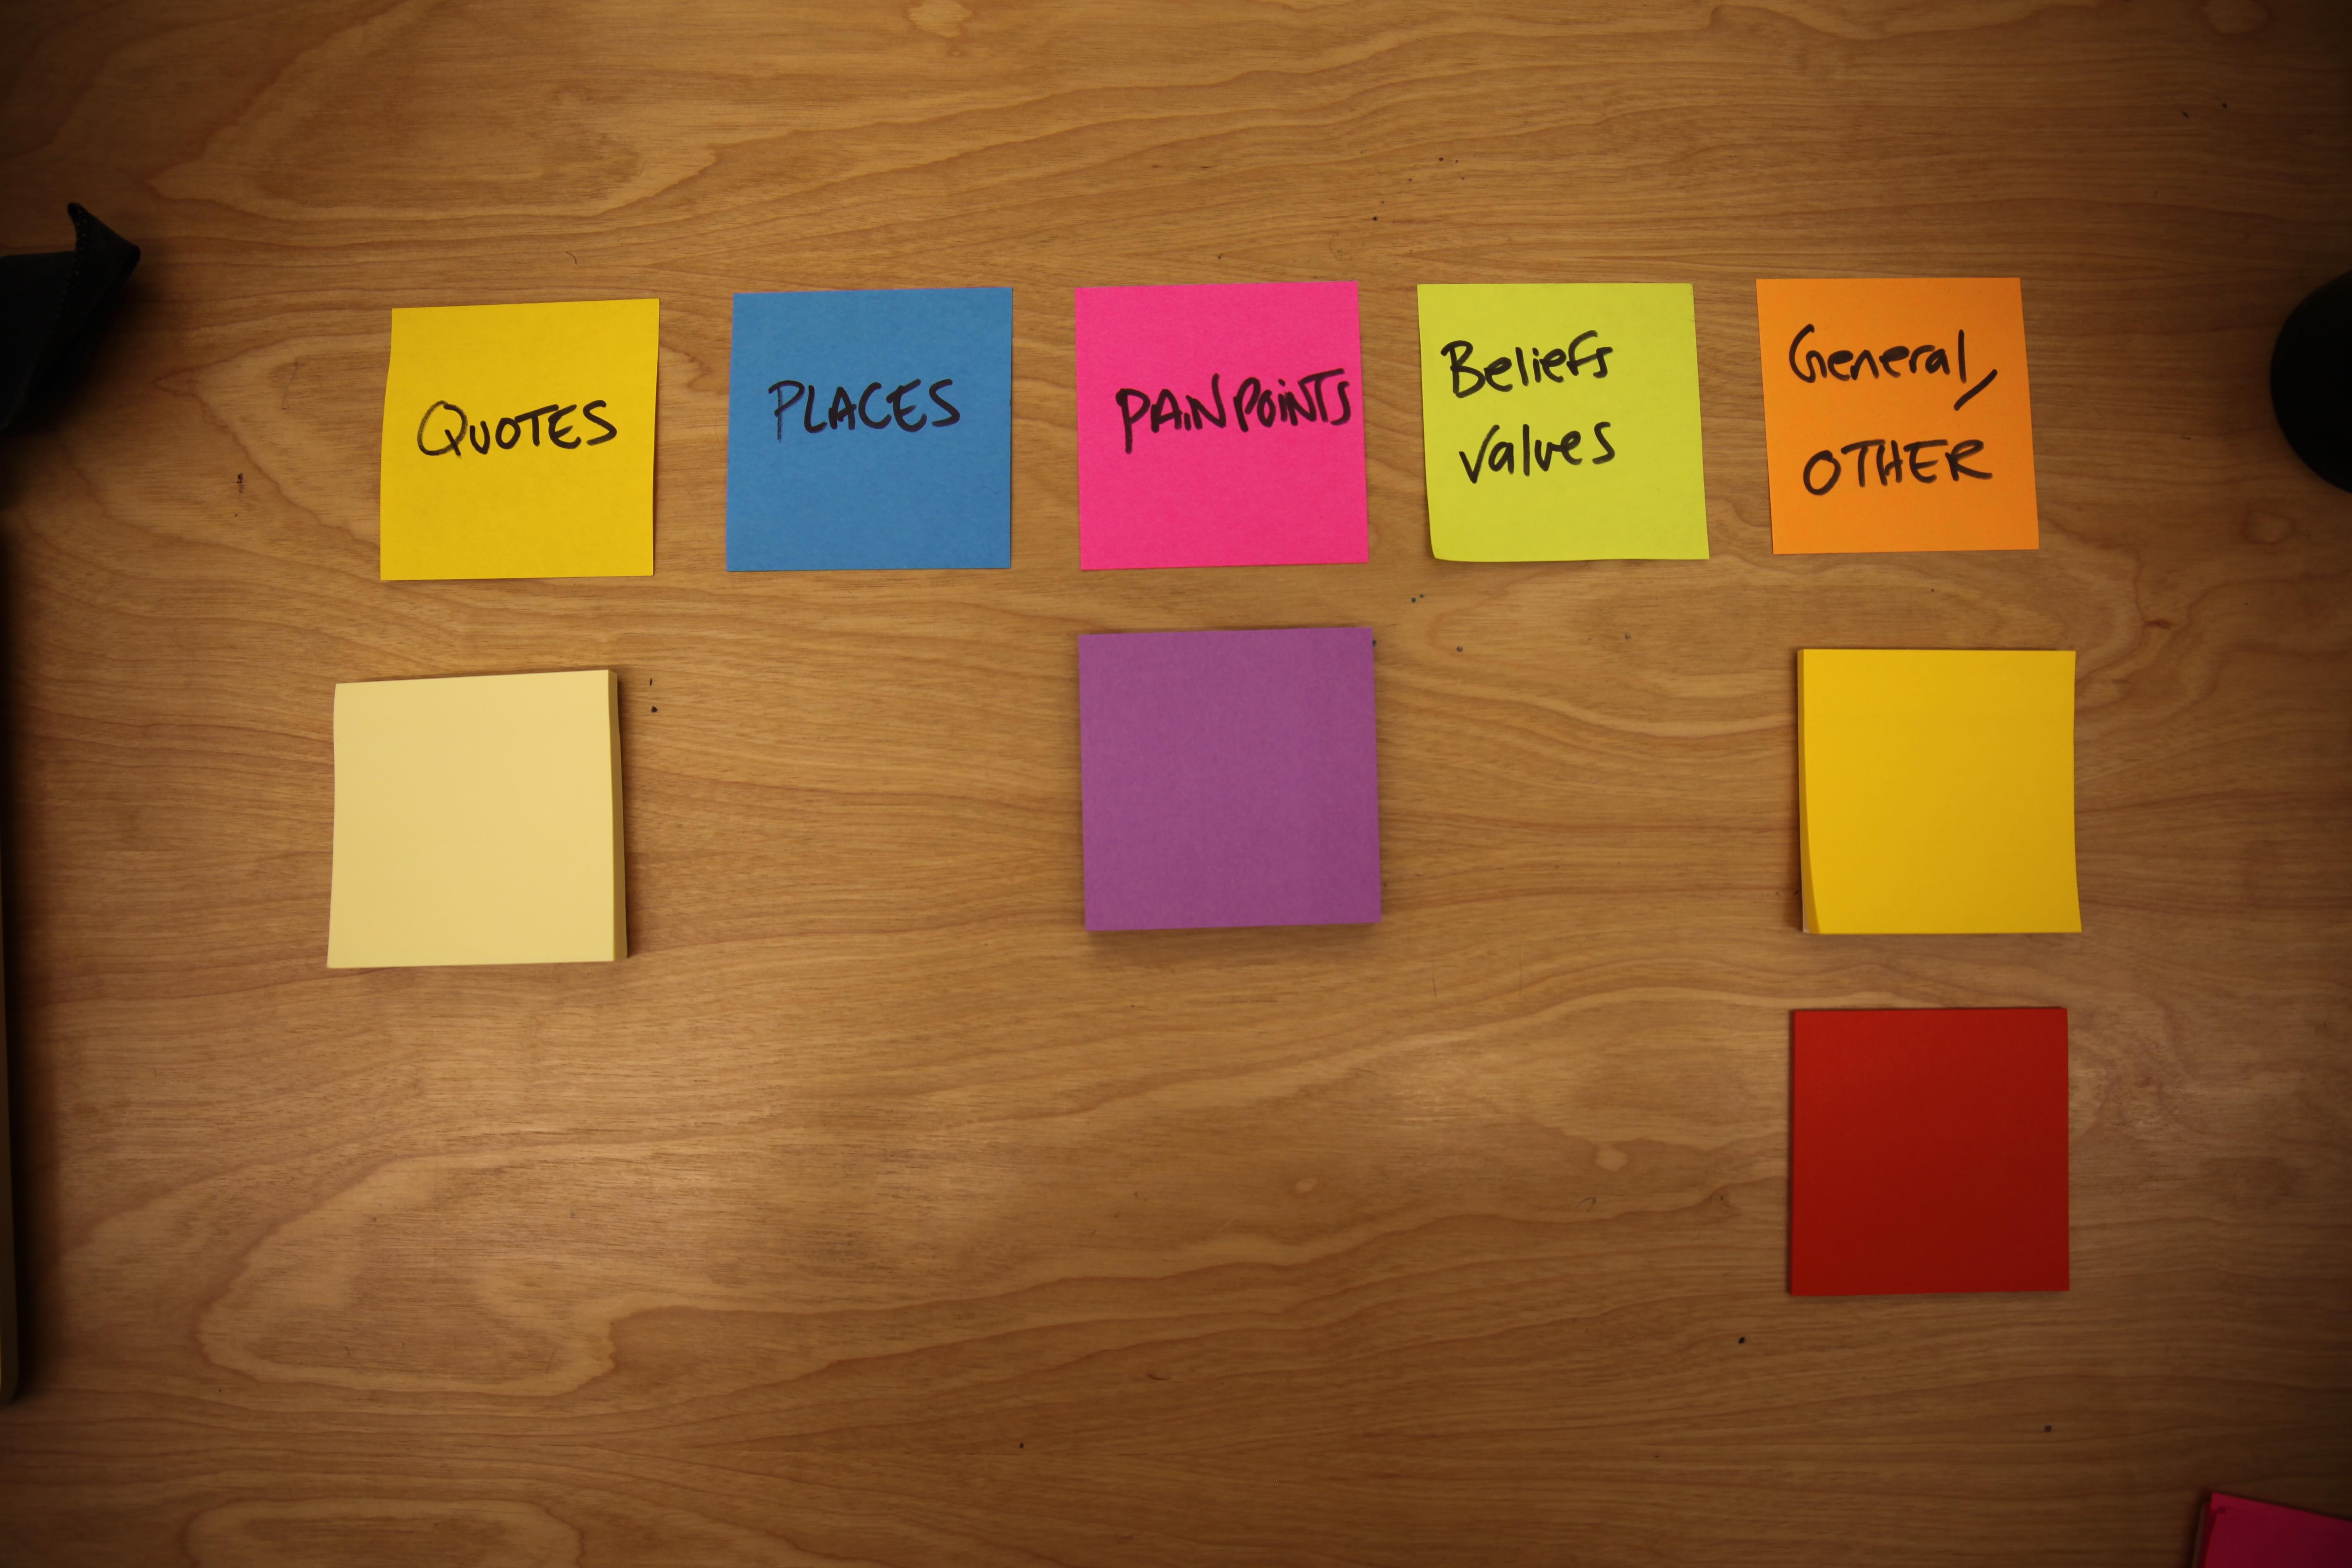 QUOTES
PLACES
PAINPOINTS
Beliefs
Values
General/
OTHER